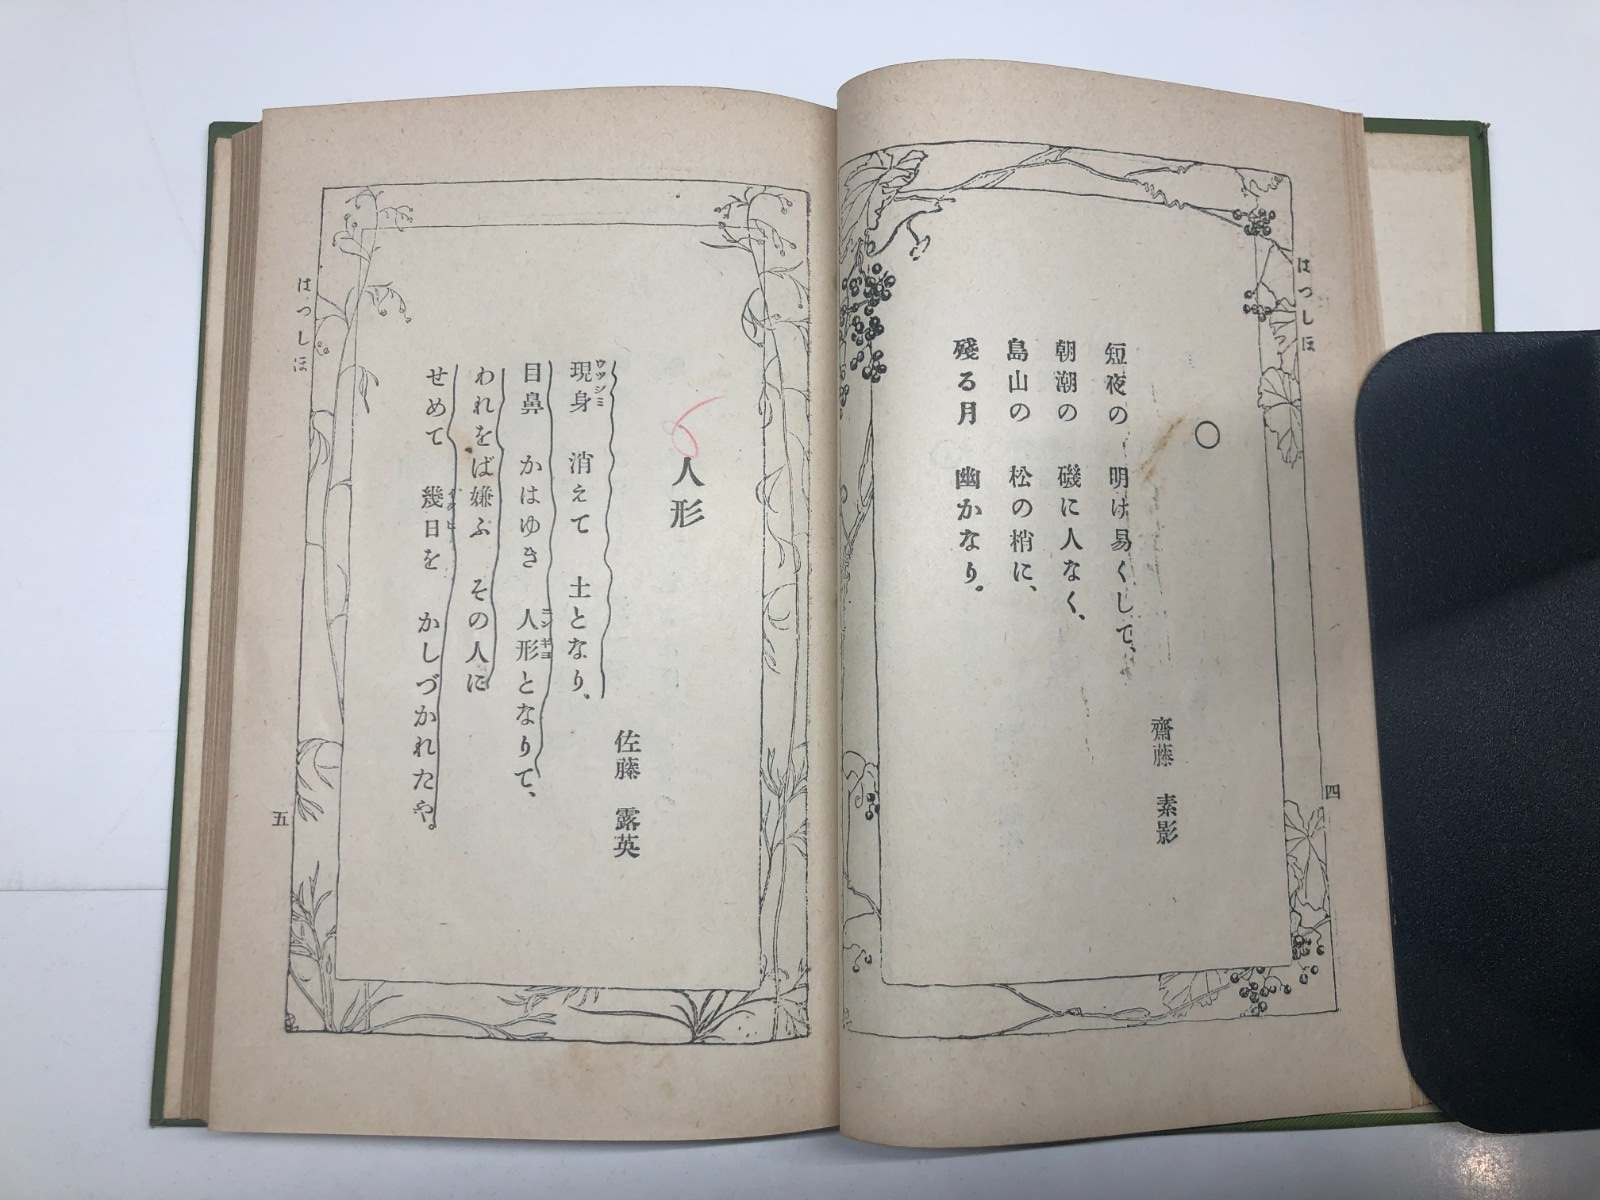 はつしほ
四
〇
齋藤 素影
短夜の 明け易くして、
朝潮の 磯に人なく、
島山の 松の梢に、
殘る月 幽かなり。
人形
佐藤 露英
現身 消えて 土となり、
ウツシミ
目鼻 かはゆき 人形となりて、
ニンギヨ
われをば嫌ふ その人に
せめて 幾日を かしづかれたや。
はつしほ
五